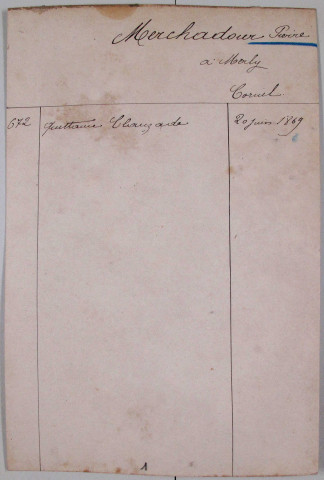 Merchadour Pierre
à Merly
Cornel
672 Guithaume Clauzade 20 juin 1869
1